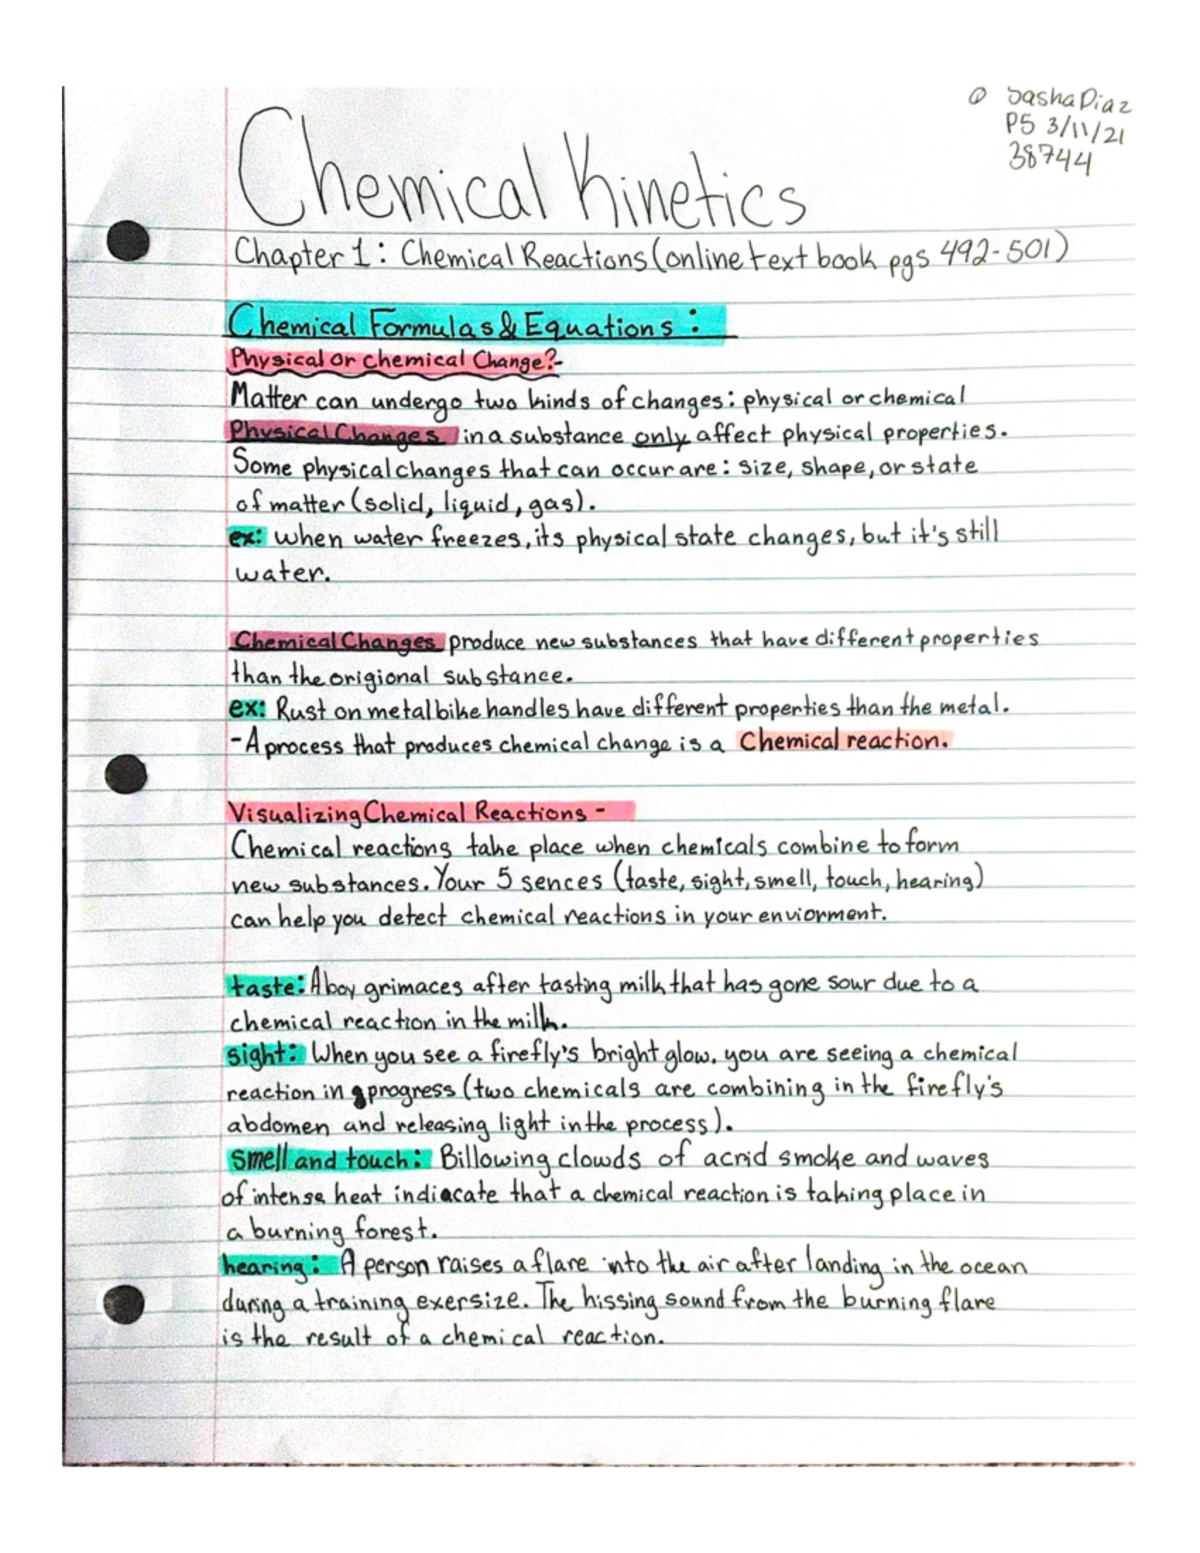 ① Sasha Diaz
P5 3/11/21
38744
Chemical Kinetics
Chapter 1: Chemical Reactions (online text book pgs 492-501)
Chemical Formulas & Equations:
Physical or chemical Change?-
Matter can undergo two kinds of changes: physical or chemical
Physical Changes in a substance only affect physical properties.
Some physical changes that can occur are: size, shape, or state
of matter (solid, liquid, gas).
ex: when water freezes, its physical state changes, but it's still
water.
Chemical Changes produce new substances that have different properties
than the origional substance.
ex: Rust on metal bike handles have different properties than the metal.
- A process that produces chemical change is a Chemical reaction.
Visualizing Chemical Reactions -
Chemical reactions take place when chemicals combine to form
new substances. Your 5 sences (taste, sight, smell, touch, hearing)
can help you detect chemical reactions in your enviorment.
taste: A boy grimaces after tasting milk that has gone sour due to a
chemical reaction in the milk.
sight: When you see a firefly's bright glow, you are seeing a chemical
reaction in progress (two chemicals are combining in the firefly's
abdomen and releasing light in the process).
smell and touch: Billowing clowds of acrid smoke and waves
of intense heat indiacate that a chemical reaction is taking place in
a burning forest.
hearing: A person raises a flare into the air after landing in the ocean
during a training exersize. The hissing sound from the burning flare
is the result of a chemical reaction.